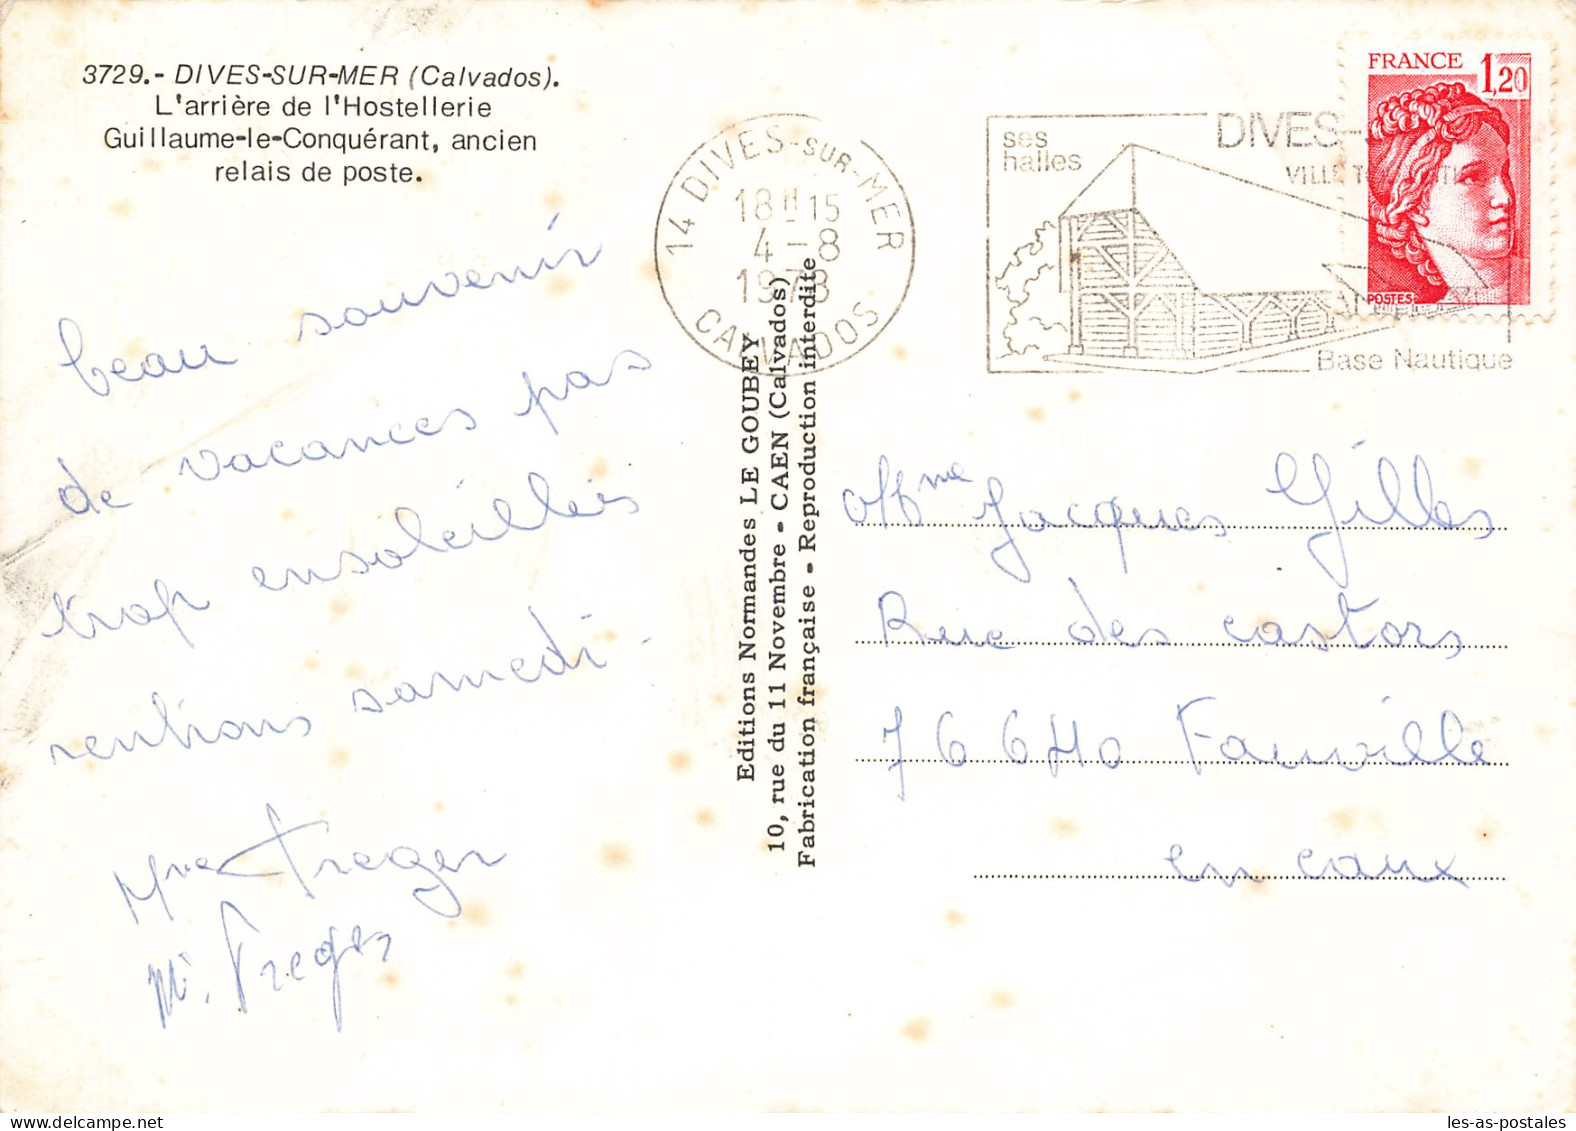 3729.- DIVES-SUR-MER (Calvados).
L'arrière de l'Hostellerie
Guillaume-le-Conquérant, ancien
relais de poste.
beau souvenir
de vacances pas
trop ensoleillées
rentrons samedi.
Mme Treger
M. Treger
Editions Normandes LE GOUBEY
10, rue du 11 Novembre - CAEN (Calvados)
Fabrication française - Reproduction interdite
14 DIVES-SUR-MER
18H15
4-8
1978
CALVADOS
ses
halles
DIVES-
VILLE
Base Nautique
FRANCE 1,20
POSTES
Jacques Gilles
Rue des castors
76640 Fauville
en caux
les-as-postales